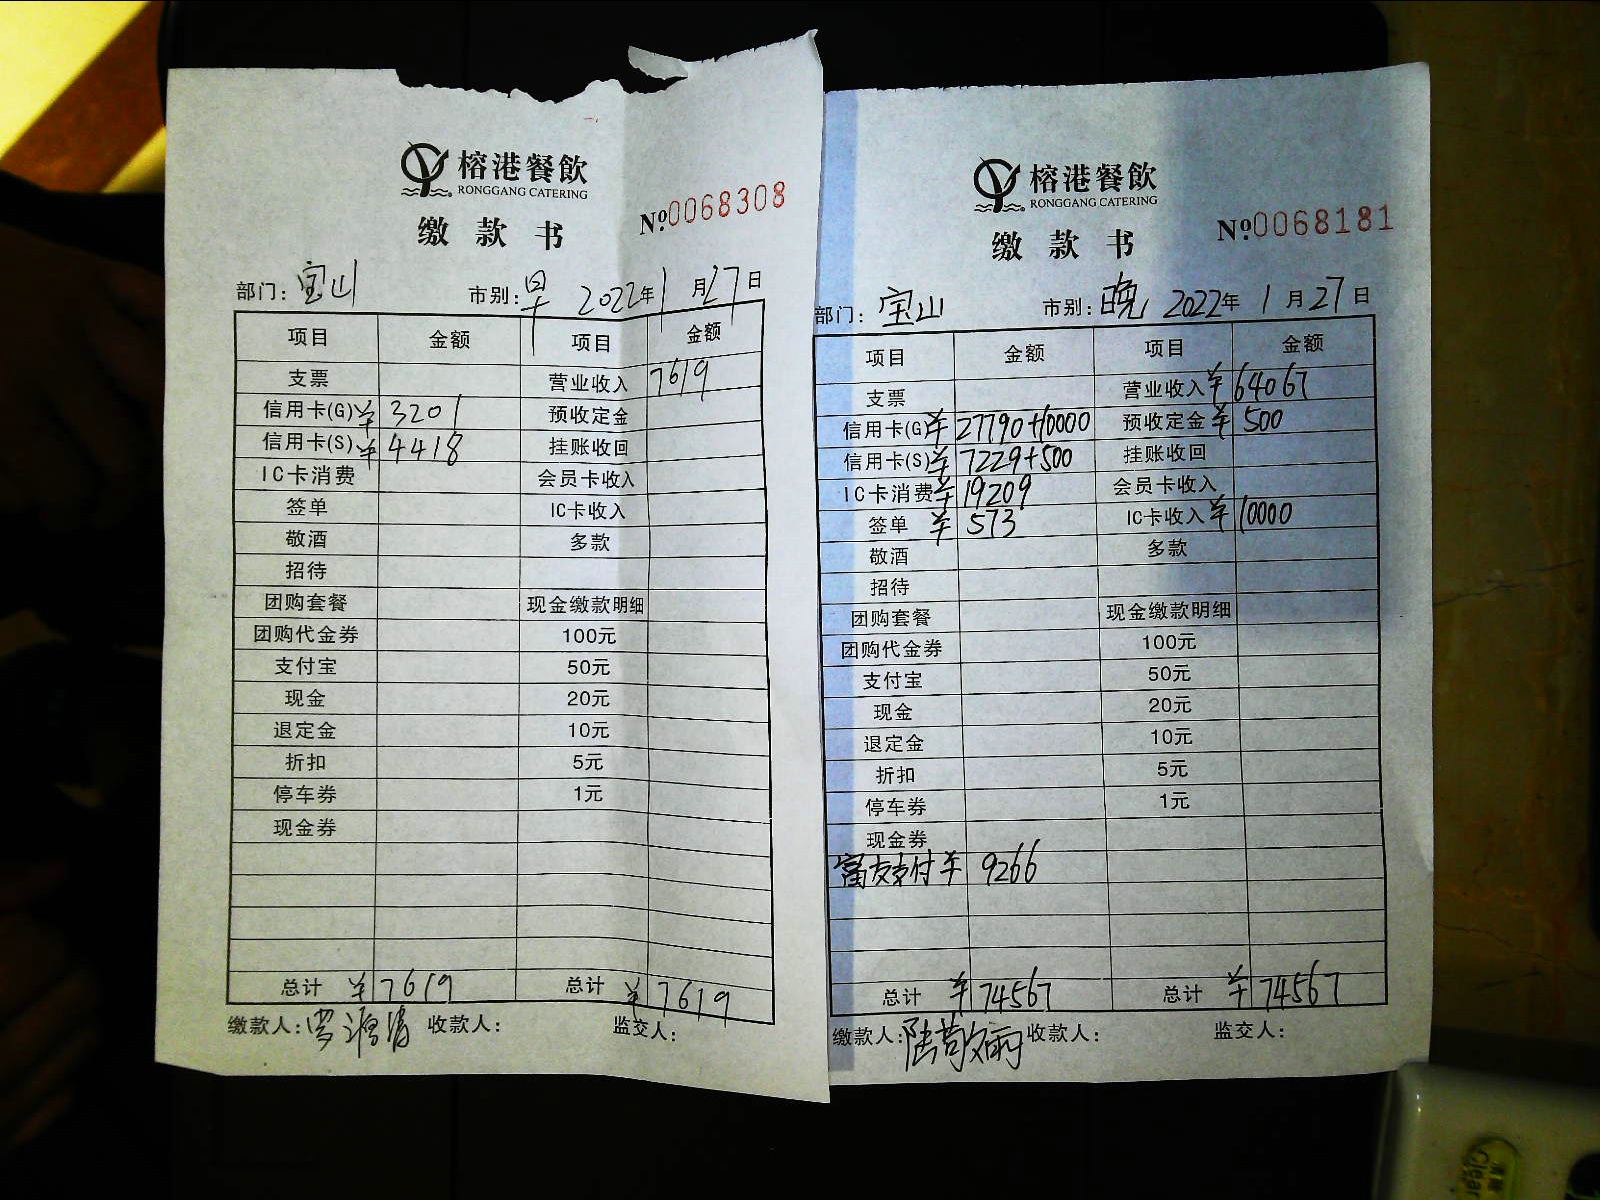 榕港餐飲
RONGGANG CATERING
缴款书
№0068308
部门：宝山 市别：早 2022年1月27日
项目 金额 项目 金额
支票 营业收入 7619
信用卡(G) ¥ 3201 预收定金
信用卡(S) ¥ 4418 挂账收回
IC卡消费 会员卡收入
签单 IC卡收入
敬酒 多款
招待
团购套餐 现金缴款明细
团购代金券 100元
支付宝 50元
现金 20元
退定金 10元
折扣 5元
停车券 1元
现金券
总计 ¥7619 总计 ¥7619
缴款人： 收款人： 监交人：
榕港餐飲
RONGGANG CATERING
缴款书
№0068181
部门：宝山 市别：晚 2022年1月27日
项目 金额 项目 金额
支票 营业收入 ¥64067
信用卡(G) ¥27790+10000 预收定金 ¥500
信用卡(S) ¥7229+500 挂账收回
IC卡消费 ¥19209 会员卡收入
签单 ¥573 IC卡收入 ¥10000
敬酒 多款
招待
团购套餐 现金缴款明细
团购代金券 100元
支付宝 50元
现金 20元
退定金 10元
折扣 5元
停车券 1元
现金券
富友支付 ¥ 9266
总计 ¥74567 总计 ¥74567
缴款人： 收款人： 监交人：
Clea